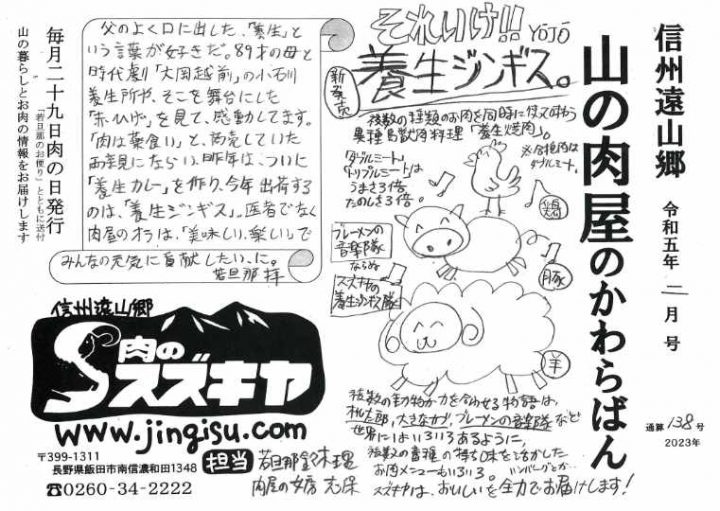 信州遠山郷
山の肉屋のかわらばん
令和五年 二月号
通算138号
2023年
それいけ!! YŌJŌ
養生ジンギス。
新発売
複数の種類のお肉を同時に使って味わう
異種鳥獣肉料理「養生焼肉」。
※合挽肉は
ダブルミート。
ダブルミート、
トリプルミートは
うまさ3倍
たのしさ3倍。
ブレーメンの
音楽隊
ならぬ
スズキヤの
養生ジンギス隊
鶏
豚
羊
複数の動物が力を合わせる物語は、
桃太郎、大きなかぶ、ブレーメンの音楽隊など
世界にはいろいろあるように、
複数の種の持ち味を活かした
お肉メニューもいろいろ。
ハンバーグとか…
スズキヤは、おいしいを全力でお届けします!
父のよく口に出した、「養生」と
いう言葉が好きだ。89才の母と
時代劇「大岡越前」の小石川
養生所や、そこを舞台にした
「赤ひげ」を見て、感動してます。
「肉は薬食い」と、商売していた
お年寄にならい、昨年は、ついに
「養生カレー」を作り、今年出荷する
のは、「養生ジンギス」。医者でなく
肉屋のオラは、「美味しい、楽しい」で
みんなの元気に貢献したい、に。
若旦那 拝
毎月二十九日肉の日発行
「若旦那のお便り」とともに送付
山の暮らしとお肉の情報をお届けします
信州遠山郷
肉の
スズキヤ
www.jingisu.com
〒399-1311
長野県飯田市南信濃和田1348
☎0260-34-2222
担当
若旦那 鈴木理
肉屋の女房 志保